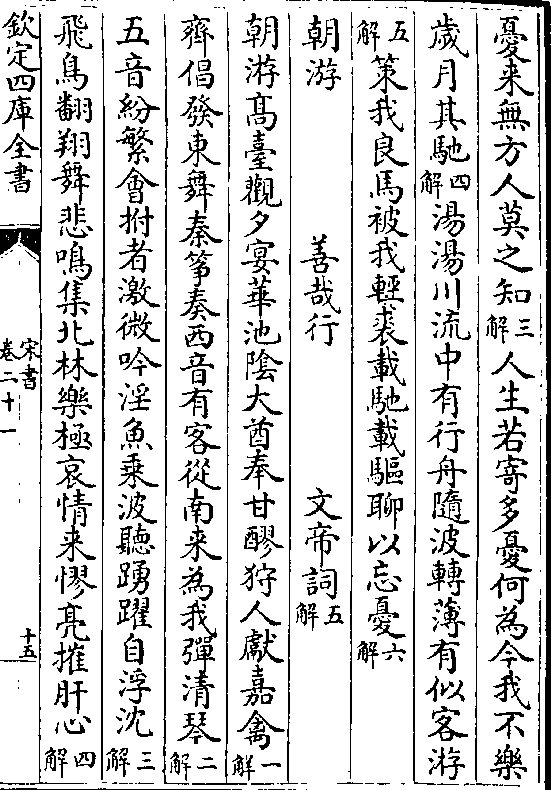 憂来無方人莫之知三解人生若寄多憂何為今我不樂
歳月其馳四解湯湯川流中有行舟隨波轉薄有似客游
五解策我良馬被我輕裘載馳載驅聊以忘憂六解
朝游 善哉行 文帝詞五解
朝游髙臺觀夕宴華池陰大酋奉甘醪狩人獻嘉禽一解
齊倡發東舞秦筝奏西音有客從南来為我彈清琴二解
五音紛繁會拊者激微吟淫魚乘波聽踴躍自浮沈三解
飛鳥翻翔舞悲鳴集北林樂極哀情来憀亮摧肝心四解
欽定四庫全書
宋書
卷二十一
十五